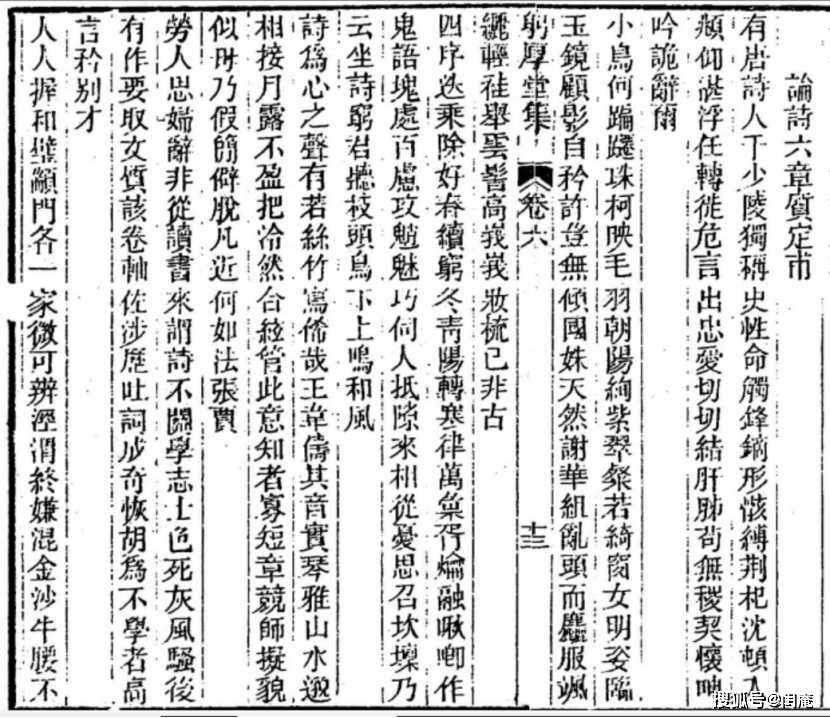 論詩六章質定甫
有唐詩人千少陵獨稱史性命觸鋒鏑形骸縛荆杞沈頓入
頫仰湛浮任轉徙危言出忠愛切切結肝肺苟無稷契懷呻
吟詭辭爾
小鳥何蹁躚珠柯映毛羽朝陽絢紫翠粲若綺窗女明姿臨
玉鏡顧影自矜許豈無傾國姝天然謝華組亂頭而麤服颯
躬厚堂集 卷六 十三
纚輕袿舉雲髻高峩峩妝梳已非古
四序迭乘除好春續窮冬青陽轉寒律萬彙胥融啾唧作
鬼語塊處百慮攻魑魅巧伺人抵隙來相從憂思召坎壈乃
云坐詩窮君聽枝頭鳥下上鳴和風
詩爲心之聲有若絲竹寫俙哉王韋儔其音實琴雅山水邈
相接月露不盈把冷然合絃管此意知者寡短章競師擬貌
似毋乃假簡僻脫凡近何如法張賈
勞人思婦辭非從讀書來謂詩不關學志士色死灰風騷後
有作要取文質該卷軸佐涉歷吐詞成奇恢胡爲不學者高
言矜别才
人人握和璧門各一家微可辨涇渭終嫌混金沙牛腰不
搜狐号@闲庵